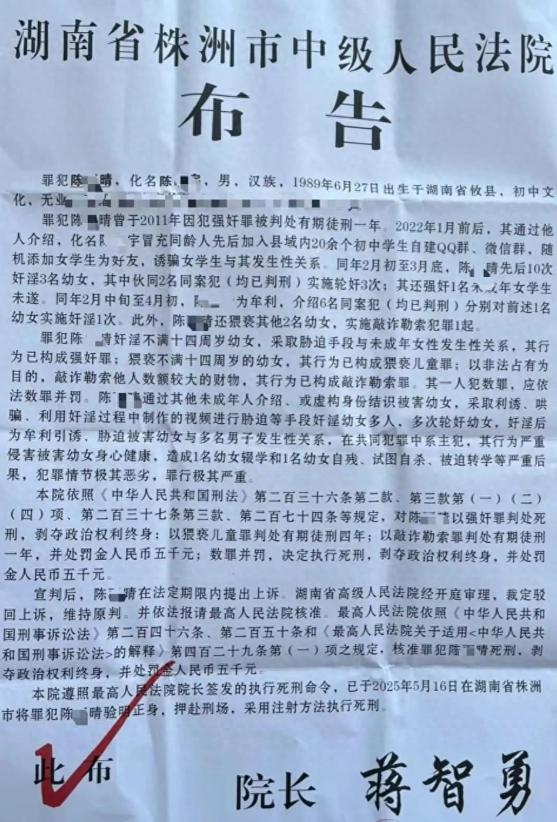 湖南省株洲市中级人民法院
布告
罪犯陈 晴，化名陈 ，男，汉族，1989年6月27日出生于湖南省攸县，初中文
化，无业
罪犯陈 晴曾于2011年因犯强奸罪被判处有期徒刑一年。2022年1月前后，其通过他
人介绍，化名 宇冒充同龄人先后加入县域内20余个初中学生自建QQ群、微信群，随
机添加女学生为好友，诱骗女学生与其发生性关系。同年2月初至3月底，陈 晴先后10次
奸淫3名幼女，其中伙同2名同案犯（均已判刑）实施轮奸3次；其还强奸1名未成年女学生
未遂。同年2月中旬至4月初， 为牟利，介绍6名同案犯（均已判刑）分别对前述1名
幼女实施奸淫1次。此外，陈 晴还猥亵其他2名幼女，实施敲诈勒索犯罪1起。
罪犯陈 晴奸淫不满十四周岁幼女，采取胁迫手段与未成年女性发生性关系，其行
为已构成强奸罪；猥亵不满十四周岁的幼女，其行为已构成猥亵儿童罪；以非法占有为
目的，敲诈勒索他人数额较大的财物，其行为已构成敲诈勒索罪。其一人犯数罪，应依
法数罪并罚。陈 晴通过其他未成年人介绍、或虚构身份结识被害幼女，采取利诱、哄
骗、利用奸淫过程中制作的视频进行胁迫等手段奸淫幼女多人，多次轮奸幼女，奸淫后
为牟利引诱、胁迫被害幼女与多名男子发生性关系，在共同犯罪中系主犯，其行为严重
侵害被害幼女身心健康，造成1名幼女辍学和1名幼女自残、试图自杀、被迫转学等严重后
果，犯罪情节极其恶劣，罪行极其严重。
本院依照《中华人民共和国刑法》第二百三十六条第二款、第三款第（一）（二）
（四）项、第二百三十七条第三款、第二百七十四条等规定，对陈 晴以强奸罪判处死
刑，剥夺政治权利终身；以猥亵儿童罪判处有期徒刑四年；以敲诈勒索罪判处有期徒刑
一年，并处罚金人民币五千元；数罪并罚，决定执行死刑，剥夺政治权利终身，并处罚
金人民币五千元。
宣判后，陈 晴在法定期限内提出上诉。湖南省高级人民法院经开庭审理，裁定驳
回上诉，维持原判。并依法报请最高人民法院核准。最高人民法院依照《中华人民共和
国刑事诉讼法》第二百四十六条、第二百五十条和《最高人民法院关于适用<中华人民共
和国刑事诉讼法>的解释》第四百二十九条第（一）项之规定，核准罪犯陈 晴死刑，剥
夺政治权利终身，并处罚金人民币五千元。
本院遵照最高人民法院院长签发的执行死刑命令，已于2025年5月16日在湖南省株洲
市将罪犯陈 晴验明正身，押赴刑场，采用注射方法执行死刑。
此布
院长 蒋智勇